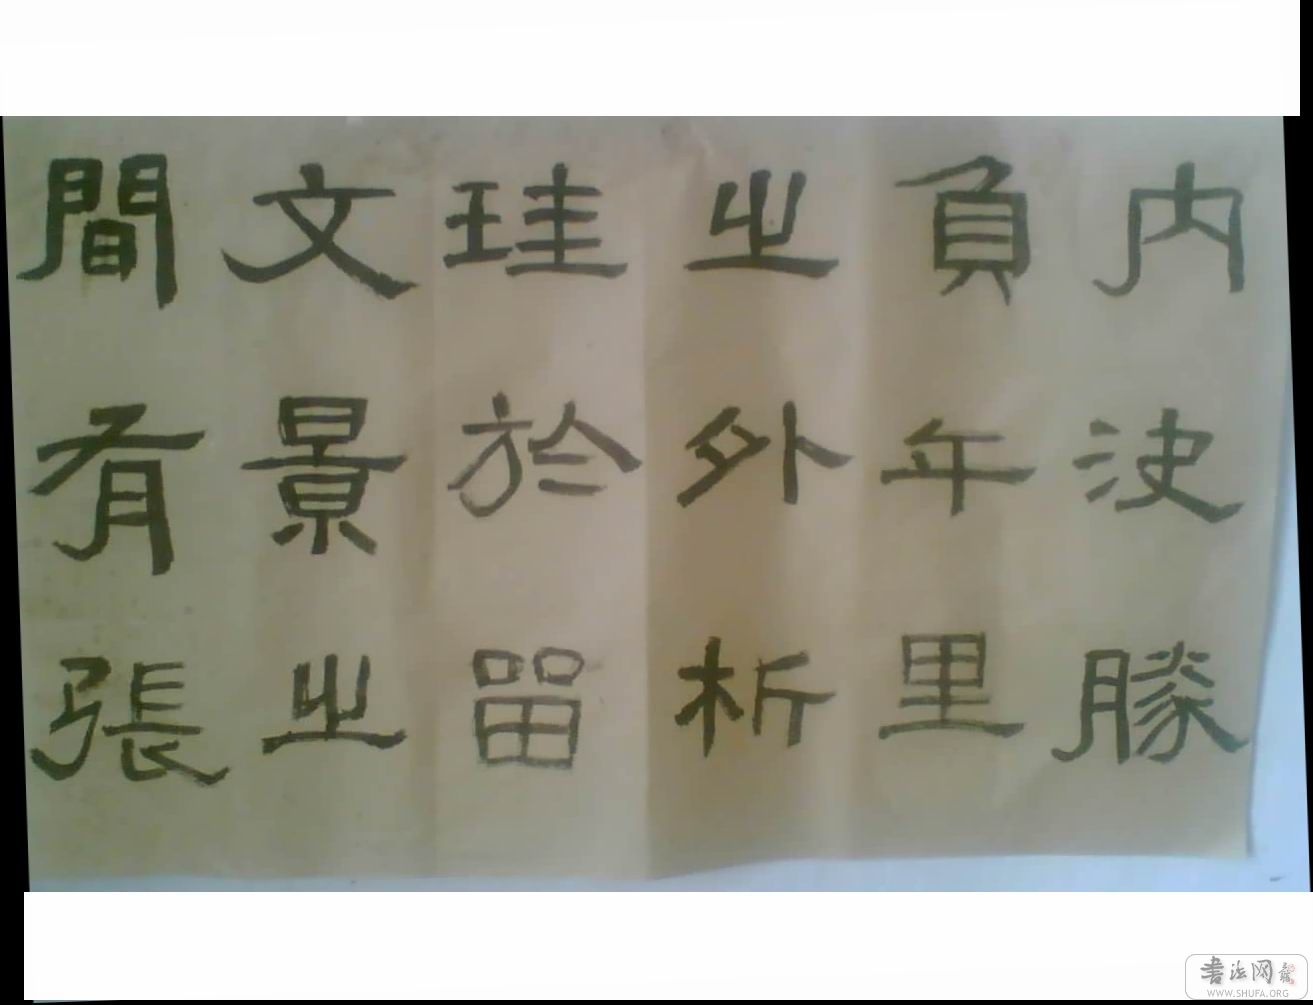 内決勝
負千里
之外析
珪於留
文景之
間有張
書法网
WWW.SHUFA.ORG